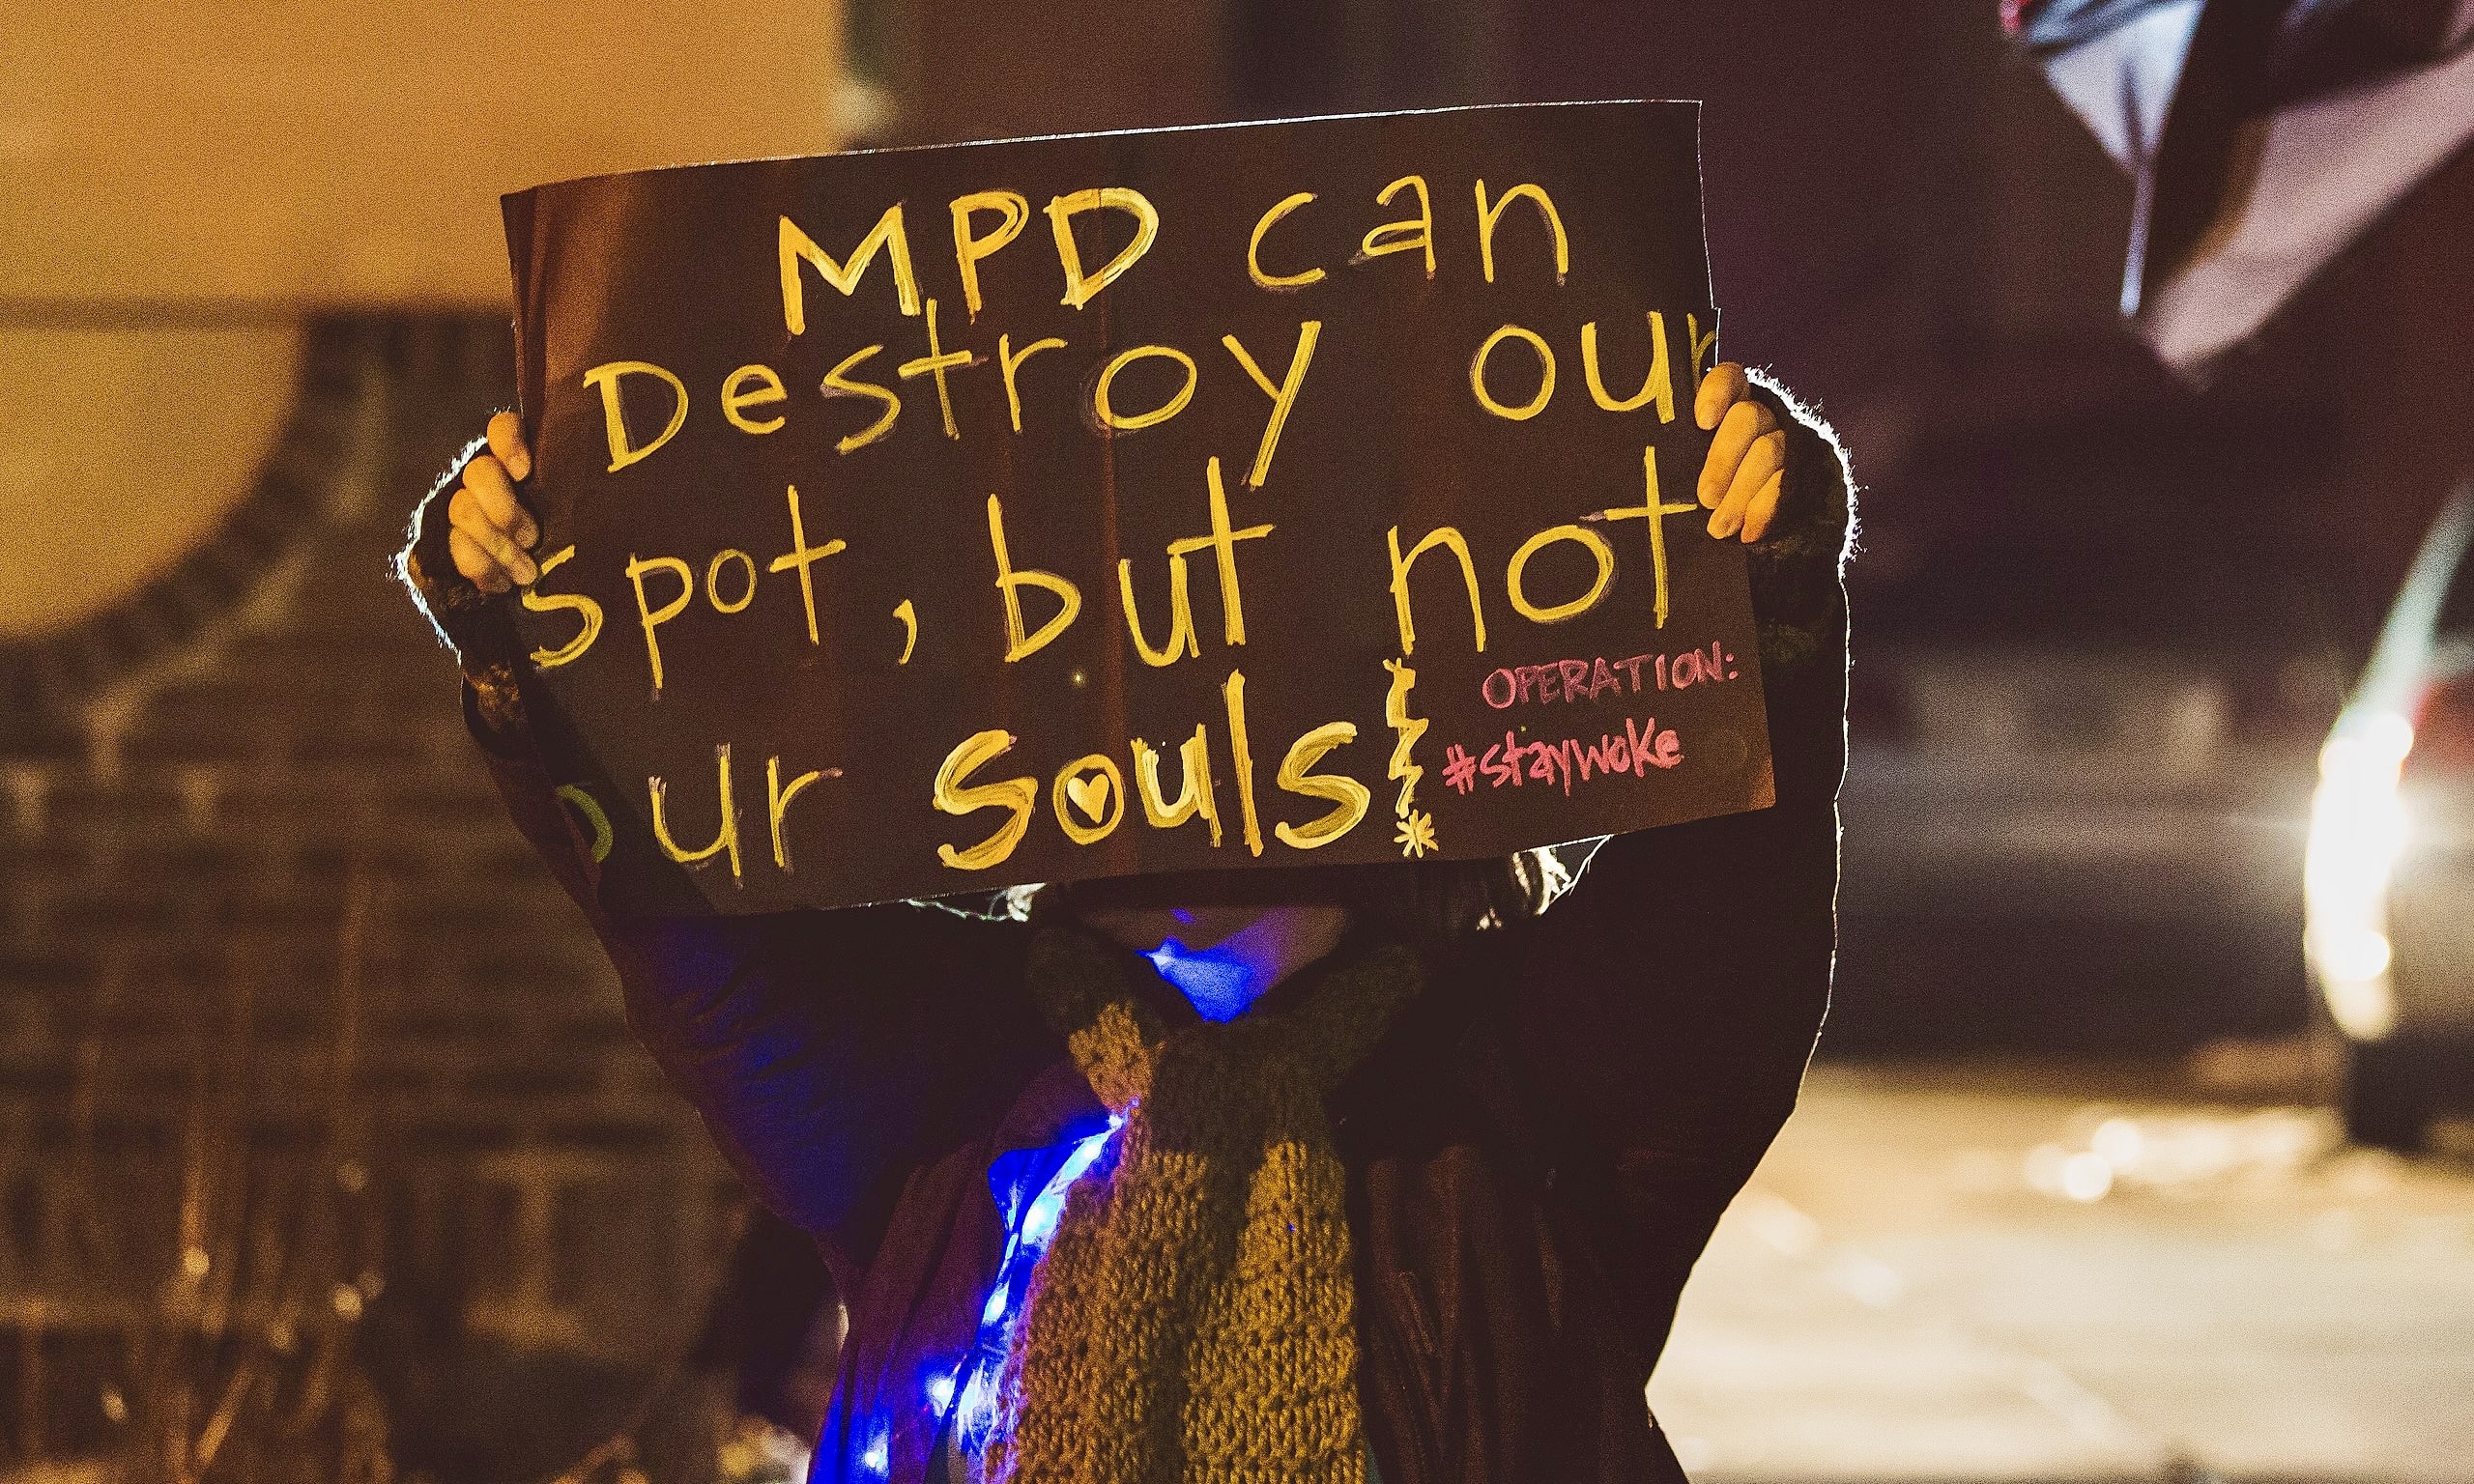 MPD can
Destroy our
spot, but not
our souls!
OPERATION:
#staywoke